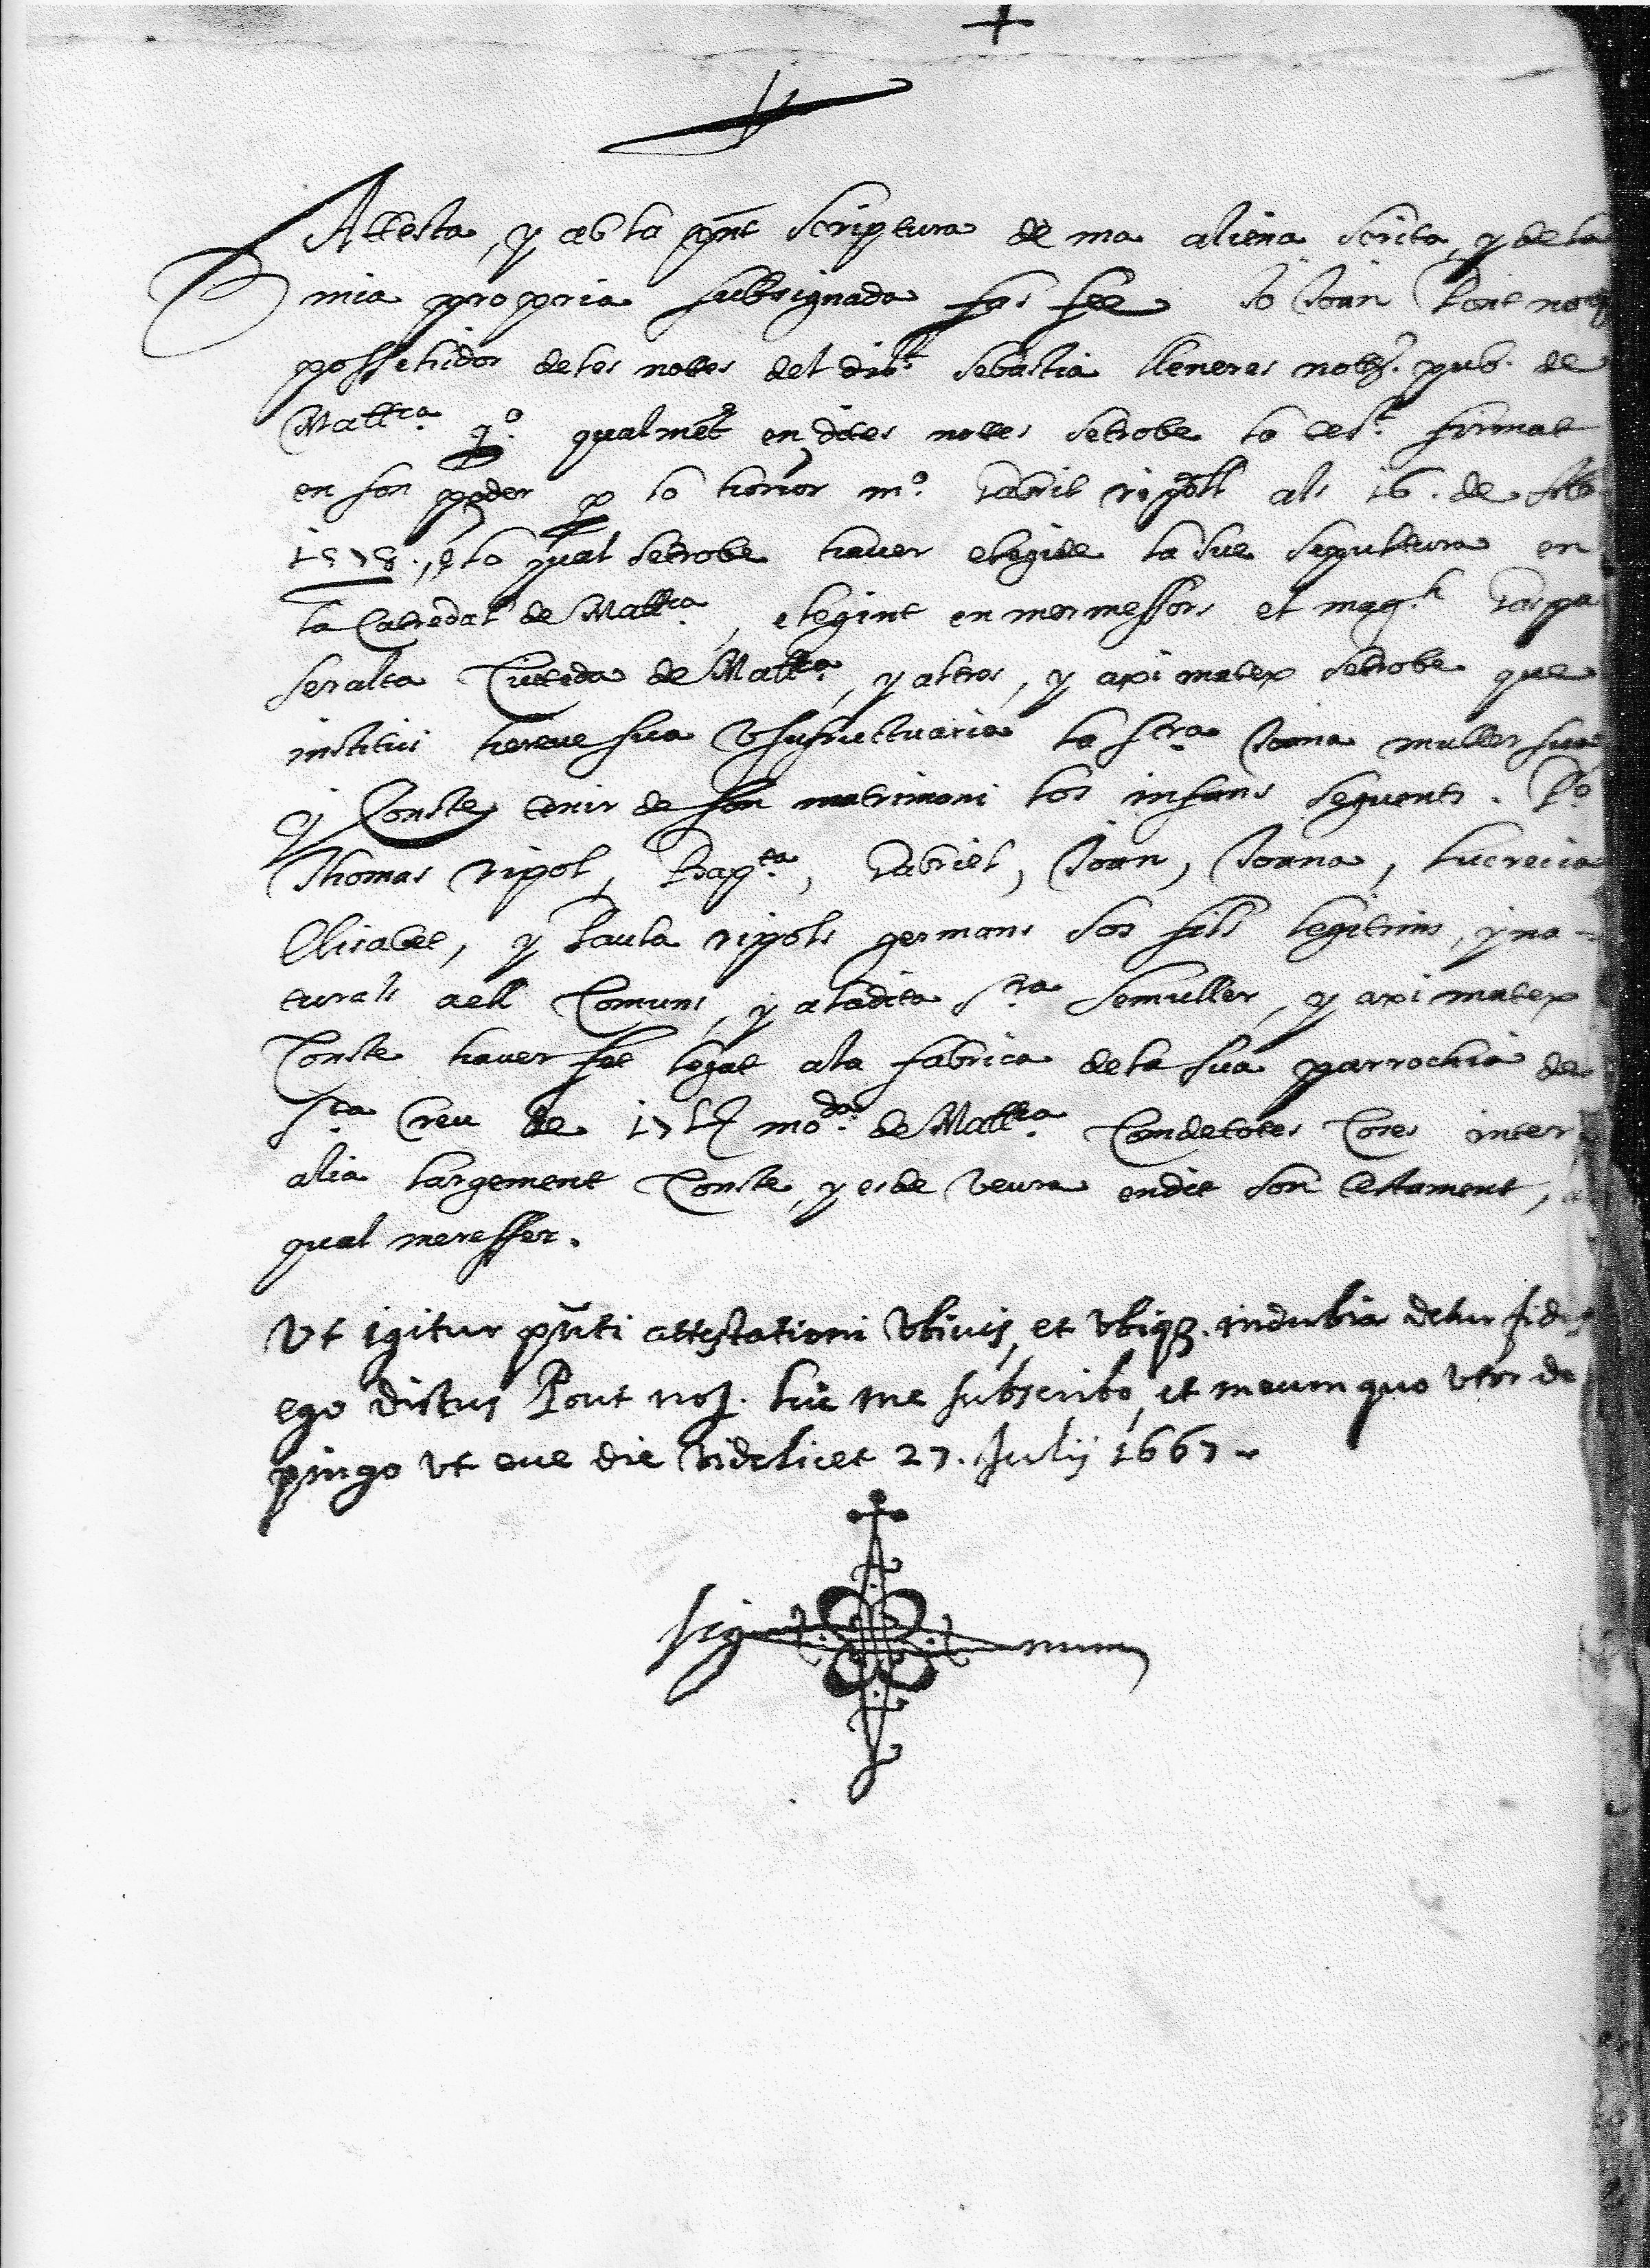 Attesta, y ab la pnt scriptura de ma aliena scrita, y de la
mia propria subsignada fas fee Jo Joan Pont not
possehidor de les notes del disct. Sebastia lleneres noty. pub. de
Mallca. qo. qualmet en dites notes se trobe lo test. firmat
en son poder p lo honor mo. Gabriel ripoll als 16. de
1578., e lo qual se trobe haver elegide la sue sepultura en
la Catredal de Mallca., elegint en mermessors el mag.h Gaspa
Seralta Ciuteda de Mallca., y altros, y axi matex se trobe que
institui hereve sua Usufructuaria la Sra. Joana muller sua
y Conste tenir de son matrimoni los infans seguents. Po
Thomas ripol, Bapta., Gabriel, Joan, Joana, Lucrecia
Elisabet, y Paula ripols germans sos fills legitims, y na-
turals aell Comuns, y a la dita Sra Se muller, y axi matex
Conste haver fet legat a la fabrica de la sua parrochia de
Sta Creu de 17 mo.da de Mallca. Com de totes Coses inter
alia largement Conste, y es de veura en dit son testament, a
qual me reffer.
Ut igitur pnti attestationi Ubivis, et Ubiqz. indubia detur fides
ego dictus Pont not. hic me subscribo, et meum quo utor de
pingo ut eve die videlicet 27. Julij 1667
sig num